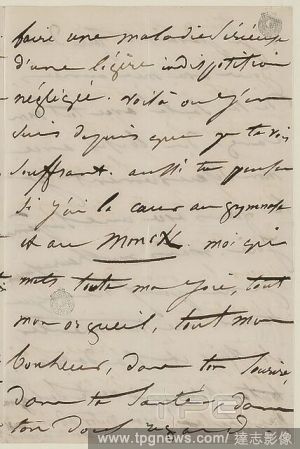 faire une maladie sérieuse
d'une légère indisposition
négligée. voilà où j'en
suis depuis que je te vois
souffrant. aussi tu penses
si j'ai le cœur au gymnase
et au monck. moi qui
mets toute ma joie, tout
mon orgueil, tout mon
bonheur, dans ton sourire,
dans ta santé, dans
ton doux regard
TPG
www.tpgnews.com/達志影像